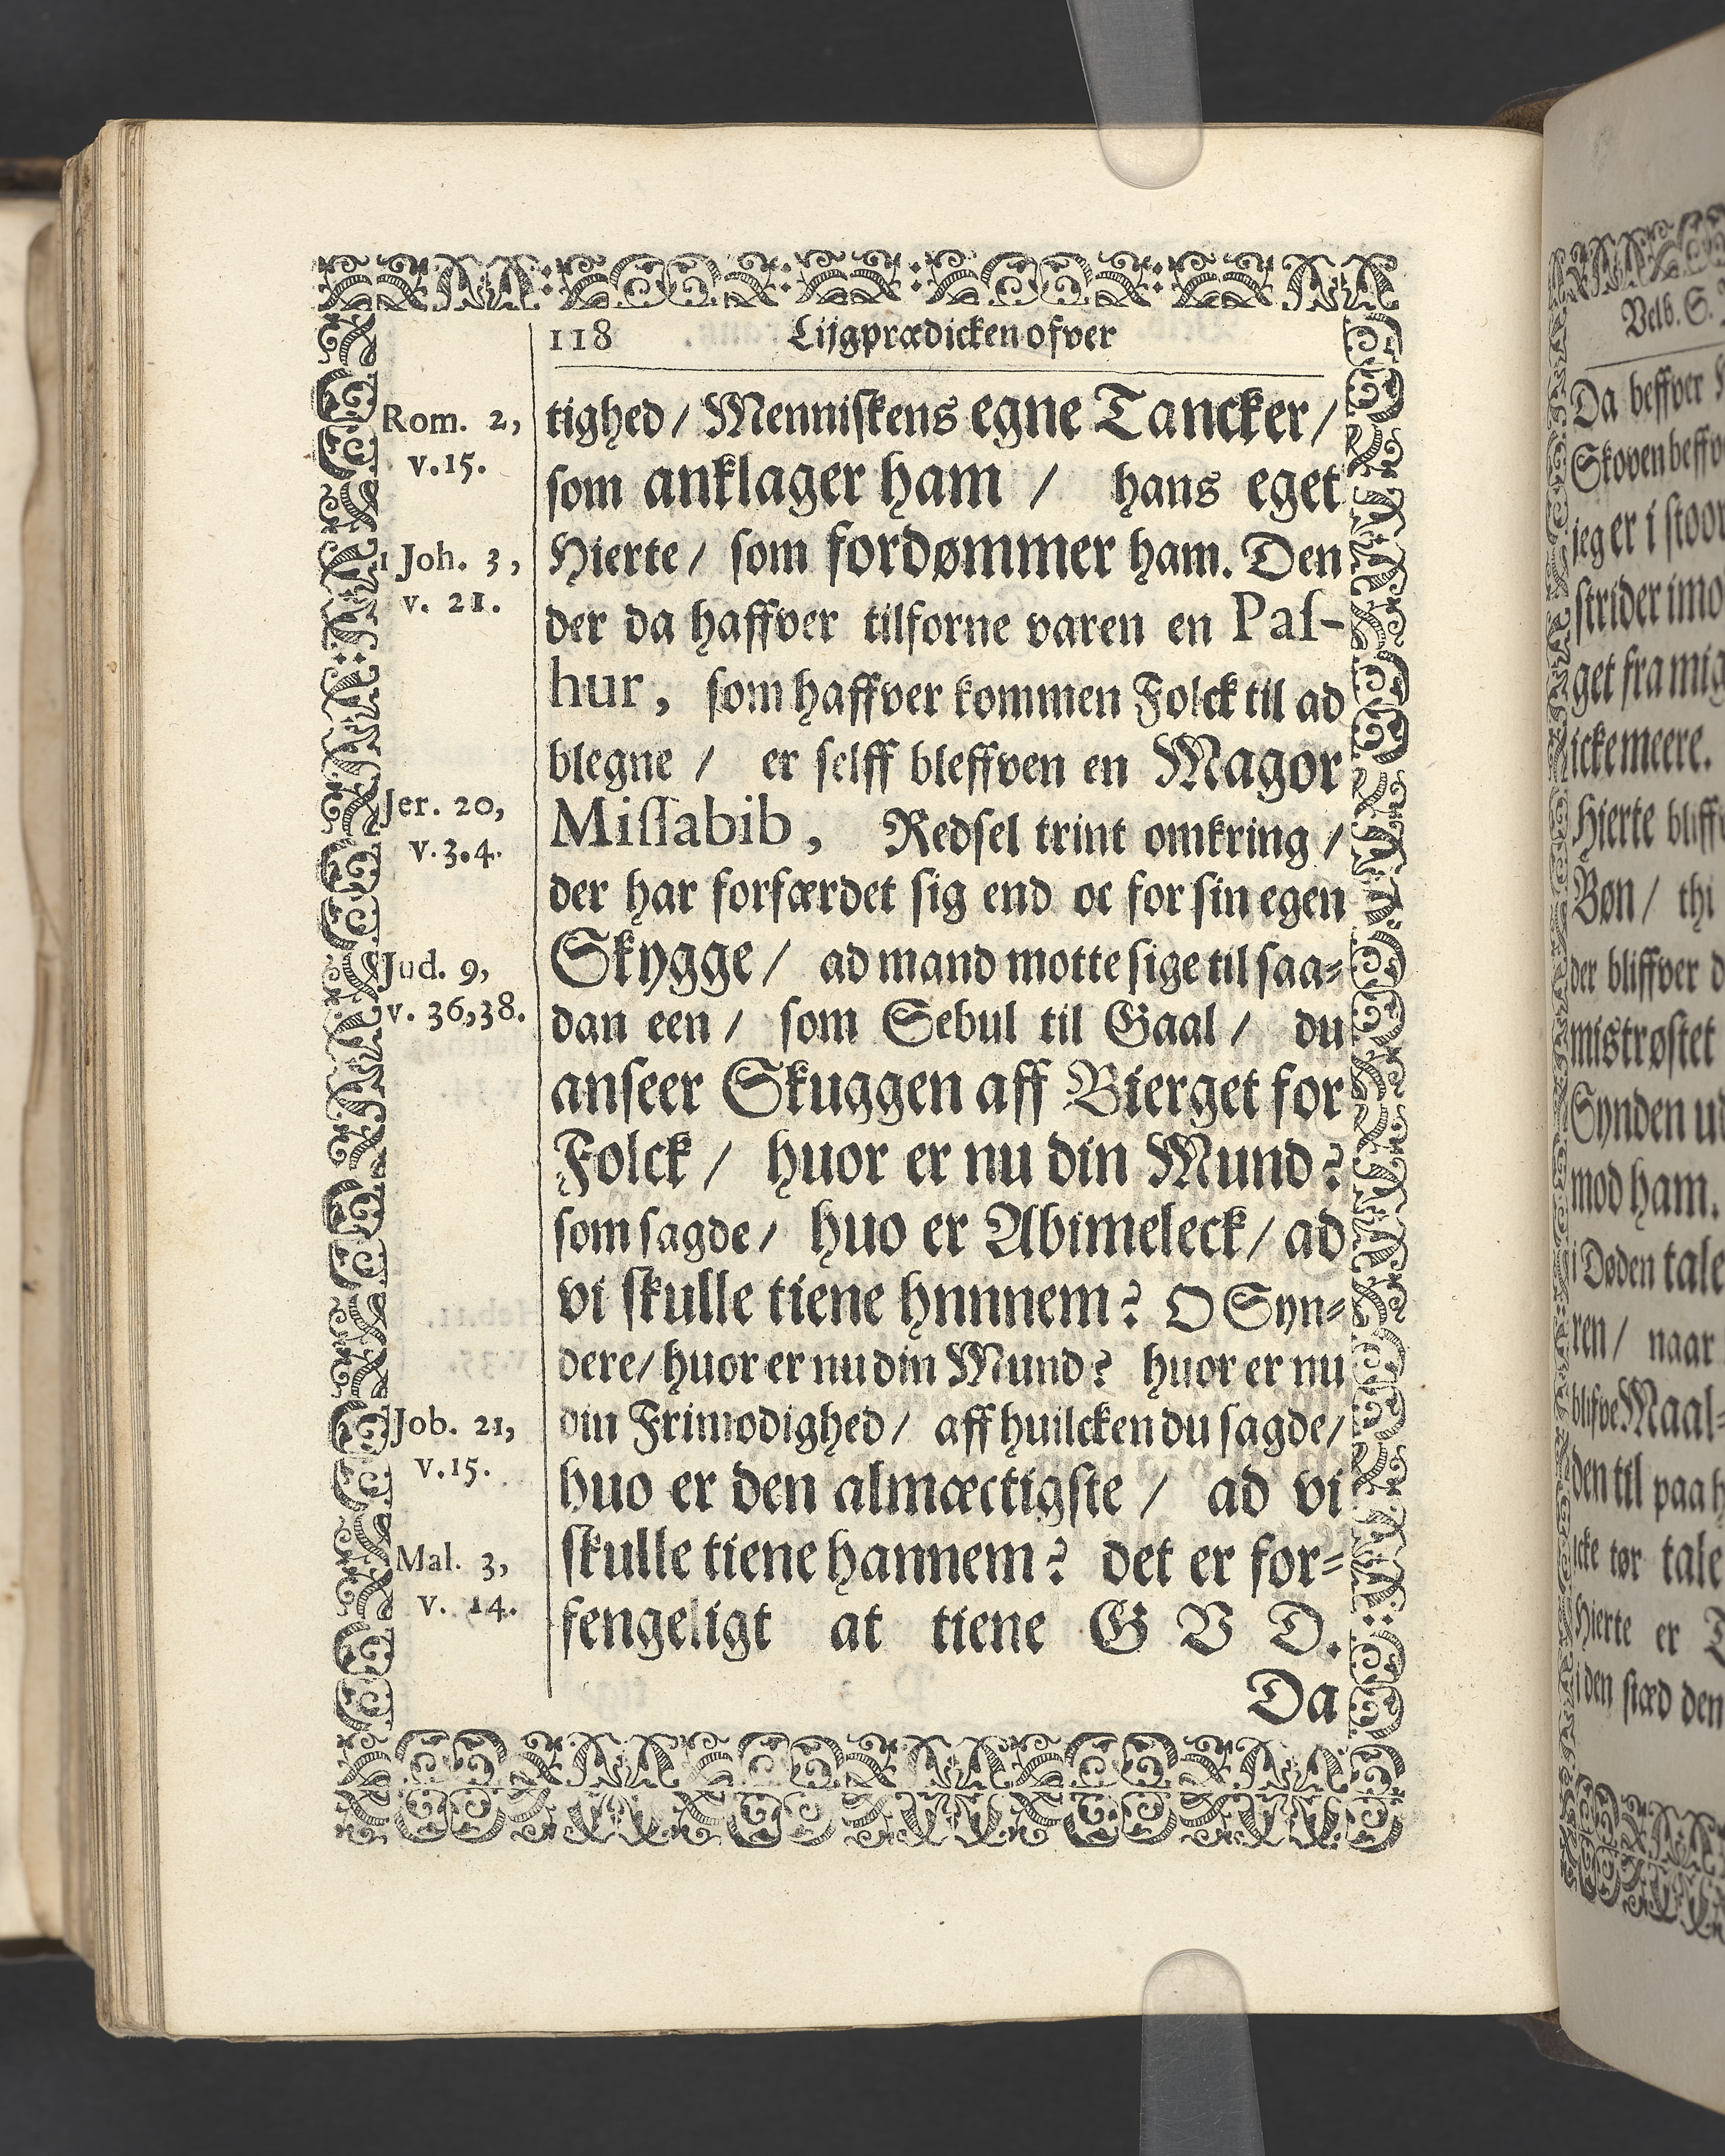 118 Lijgprædicken ofver
Rom. 2,
v. 15.
1 Joh. 3,
v. 21.
Jer. 20,
v. 3. 4.
Jud. 9,
v. 36, 38.
Job. 21,
v. 15.
Mal. 3,
v. 14.
tighed / Menniſkens egne Tancker /
ſom anklager ham / hans eget
Hierte / ſom fordømmer ham. Den
der da haffver tilforne varen en Paſ-
hur, ſom haffver kommen Folck til ad
blegne / er ſelff bleffven en Magor
Miſſabib, Redſel trint omkring /
der har forfærdet ſig end oc for ſin egen
Skygge / ad mand motte ſige til ſaa-
dan een / ſom Sebul til Gaal / du
anſeer Skuggen aff Bierget for
Folck / huor er nu din Mund?
ſom ſagde / huo er Abimeleck / ad
vi ſkulle tiene hnnnem? O Syn-
dere / huor er nu din Mund? huor er nu
din Frimodighed / aff huilcken du ſagde /
huo er den almæctigſte / ad vi
ſkulle tiene hannem? det er for-
fengeligt at tiene G V D.
Da
Velb. S.
Da beffver
jeg er i ſtoor
ſtrider imo
get fra mig
icke meere.
Hierte
Bøn / thi
der bliffver d
miſtrøſtet
Synden ud
mod ham.
i Døden tale
ren / naar
Maal-
den til paa
icke tør tale
Hierte er
i den ſtæd den